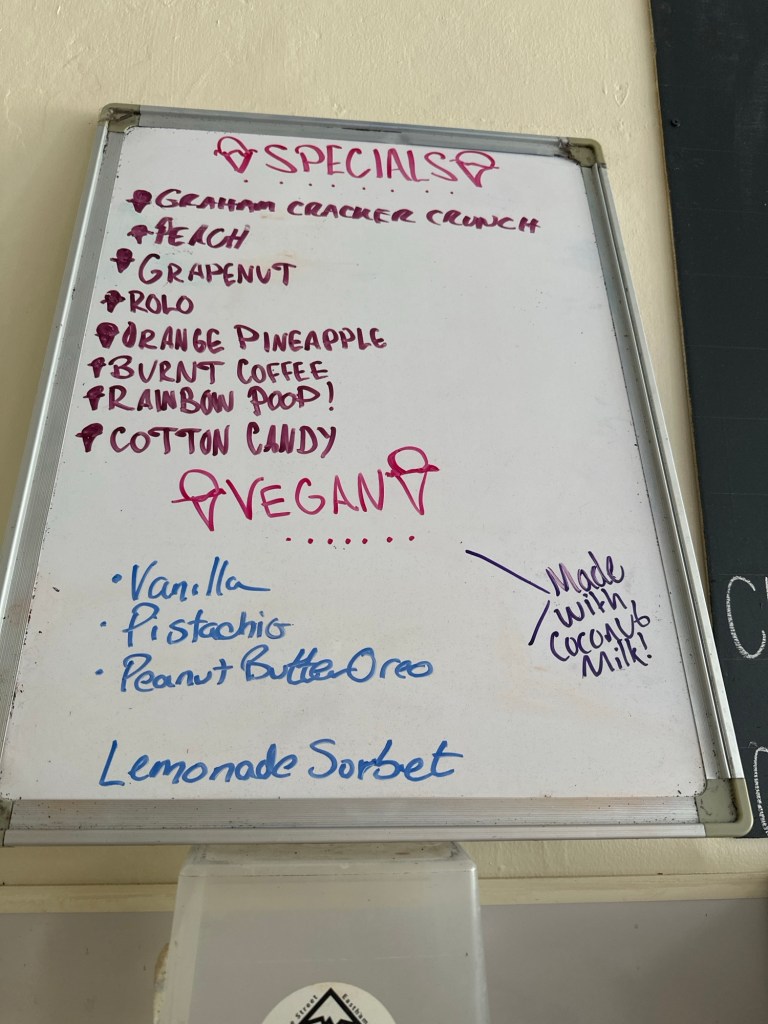 SPECIALS
GRAHAM CRACKER CRUNCH
PEACH
GRAPENUT
ROLO
ORANGE PINEAPPLE
BURNT COFFEE
RAINBOW POOP!
COTTON CANDY
VEGAN
• Vanilla
• Pistachio
• Peanut Butter Oreo
Made
with
Coconut
Milk!
Lemonade Sorbet
Street Eastham